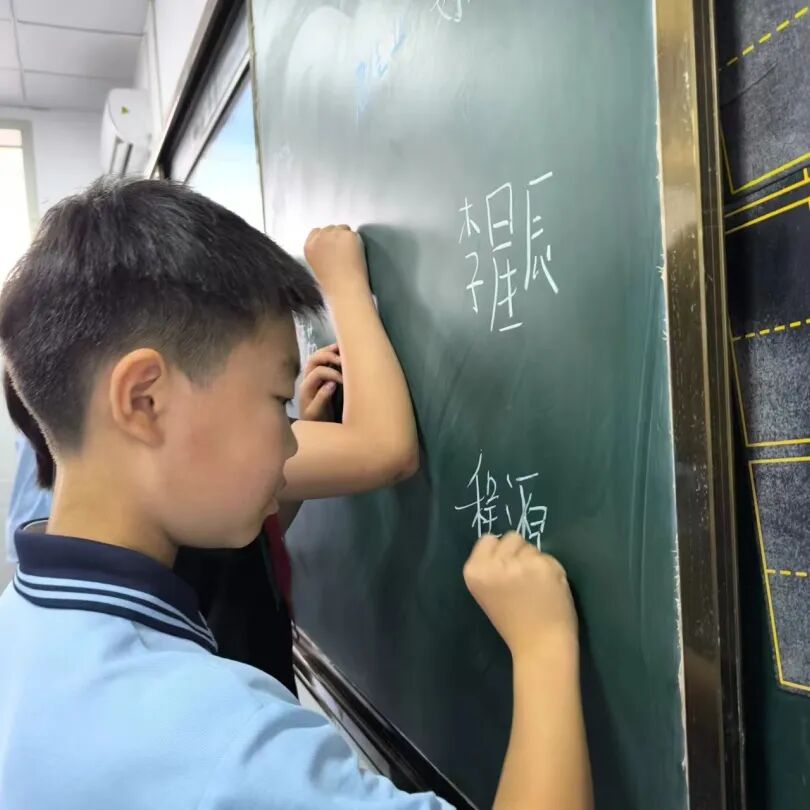 李星辰
程源